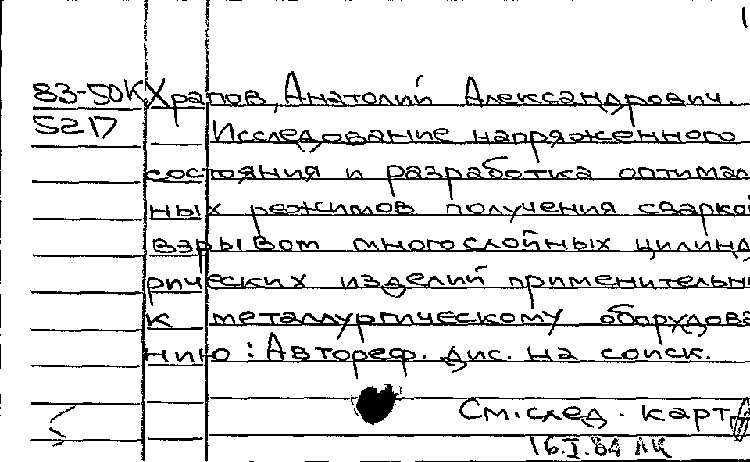 83-50К Храпов, Анатолий Александрович.
5217 Исследование напряженного
состояния и разработка оптимал
ных режимов получения сваркой
взрывом многослойных цилинд
рических изделий применительн
к металлургическому оборудова
нию : Автореф. дис. на соиск.
См. след. карт
16.I.84 ЛК